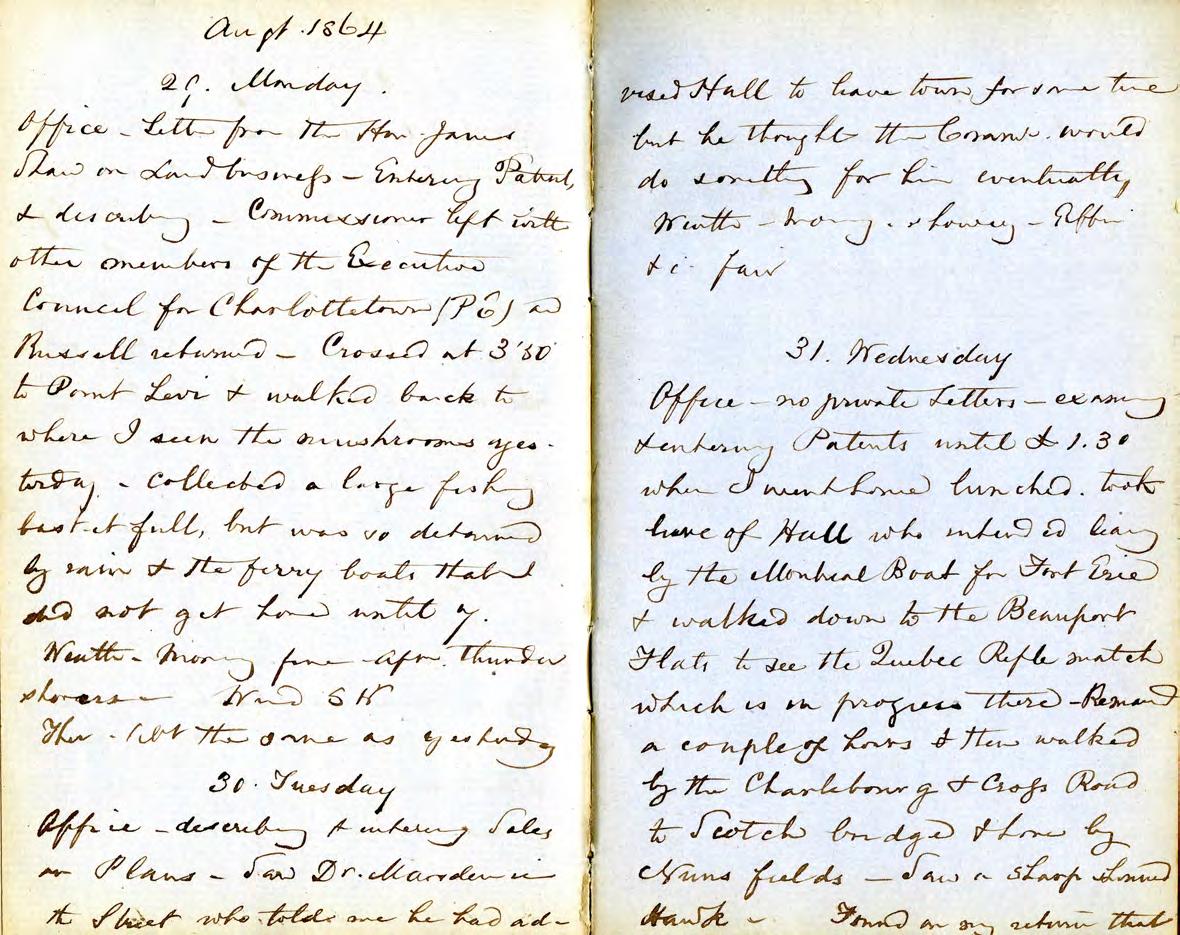 Augt. 1864
29. Monday.
Office - Letter from the Hon. James
Shaw on Land business - Entering Patents,
& describing - Commissioner left with
other members of the Executive
Council for Charlottetown (PE) and
Russell returned - Crossed at 3'30
to Point Levi & walked back to
where I seen the mushrooms yes-
terday - collected a large fishing
basket full, but was so detained
by rain & the ferry boats that I
did not get home until 7.
Weather - Morning fine - Aftn. thunder
showers Wind SW
Ther - abt the same as yesterday
30. Tuesday
Office - describing & entering Sales
on Plans - Saw Dr. Marsden in
the Street who told me he had ad-
vised Hall to leave town for some time
but he thought the Comm. would
do something for him eventually
Weather - Morng. showery -
&c. fair
31. Wednesday
Office - no private Letters - examg
& entering Patents until 1.30
when I went home lunched. took
leave of Hall who intended leavg
by the Montreal Boat for Fort Erie
& walked down to the Beauport
Flats to see the Quebec Rifle match
which is in progress there - Remaind
a couple of hours & then walked
by the Charlebourg & Cross Road
to Scotch bridge & home by
Nuns fields - Saw a sharp shinned
Hawk - Found on my return that